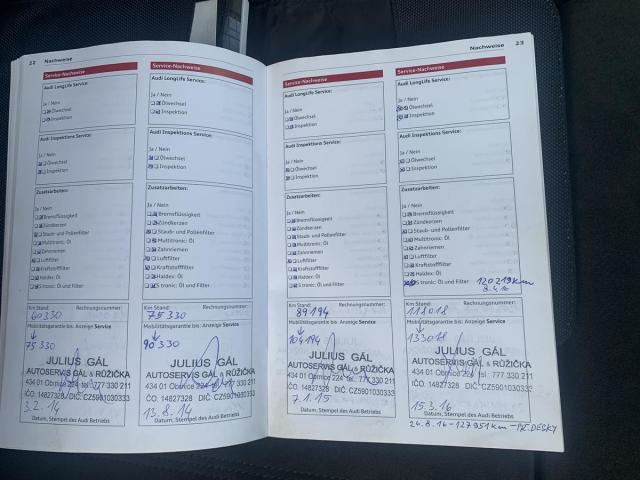 22 Nachweise
Service-Nachweise
Audi LongLife Service:
Ja / Nein
Ölwechsel
Inspektion
Audi Inspektions Service:
Ja / Nein
Ölwechsel
Inspektion
Zusatzarbeiten:
Ja / Nein
Bremsflüssigkeit
Zündkerzen
Staub- und Pollenfilter
Multitronic: Öl
Zahnriemen
Luftfilter
Kraftstofffilter
Haldex: Öl
S tronic: Öl und Filter
Km Stand: Rechnungsnummer:
60330
Mobilitätsgarantie bis: Anzeige Service
75330
3.2.14
Datum, Stempel des Audi Betriebs
Service-Nachweise
Audi LongLife Service:
Ja / Nein
Ölwechsel
Inspektion
Audi Inspektions Service:
Ja / Nein
Ölwechsel
Inspektion
Zusatzarbeiten:
Ja / Nein
Bremsflüssigkeit
Zündkerzen
Staub- und Pollenfilter
Multitronic: Öl
Zahnriemen
Luftfilter
Kraftstofffilter
Haldex: Öl
S tronic: Öl und Filter
Km Stand: Rechnungsnummer:
75 330
Mobilitätsgarantie bis: Anzeige Service
90 330
JULIUS GÁL
AUTOSERVIS GÁL & RŮŽIČKA
434 01 Obrnice 224 tel. 777 330 211
IČO: 14827328 DIČ: CZ5901030333
13.8.14
Datum, Stempel des Audi Betriebs
Nachweise 23
Service-Nachweise
Audi LongLife Service:
Ja / Nein
Ölwechsel
Inspektion
Audi Inspektions Service:
Ja / Nein
Ölwechsel
Inspektion
Zusatzarbeiten:
Ja / Nein
Bremsflüssigkeit
Zündkerzen
Staub- und Pollenfilter
Multitronic: Öl
Zahnriemen
Luftfilter
Kraftstofffilter
Haldex: Öl
S tronic: Öl und Filter
Km Stand: Rechnungsnummer:
89194
Mobilitätsgarantie bis: Anzeige Service
104194
7.1.15
Datum, Stempel des Audi Betriebs
Service-Nachweise
Audi LongLife Service:
Ja / Nein
Ölwechsel
Inspektion
Audi Inspektions Service:
Ja / Nein
Ölwechsel
Inspektion
Zusatzarbeiten:
Ja / Nein
Bremsflüssigkeit
Zündkerzen
Staub- und Pollenfilter
Multitronic: Öl
Zahnriemen
Luftfilter
Kraftstofffilter
Haldex: Öl
S tronic: Öl und Filter
120219km
Km Stand: Rechnungsnummer:
118018
Mobilitätsgarantie bis: Anzeige Service
133018
JULIUS GÁL
AUTOSERVIS GÁL & RŮŽIČKA
434 01 Obrnice 224 tel. 777 330 211
IČO: 14827328 DIČ: CZ5901030333
15.3.16
Datum, Stempel des Audi Betriebs
24.8.16-127951km-PŘ.DESKY